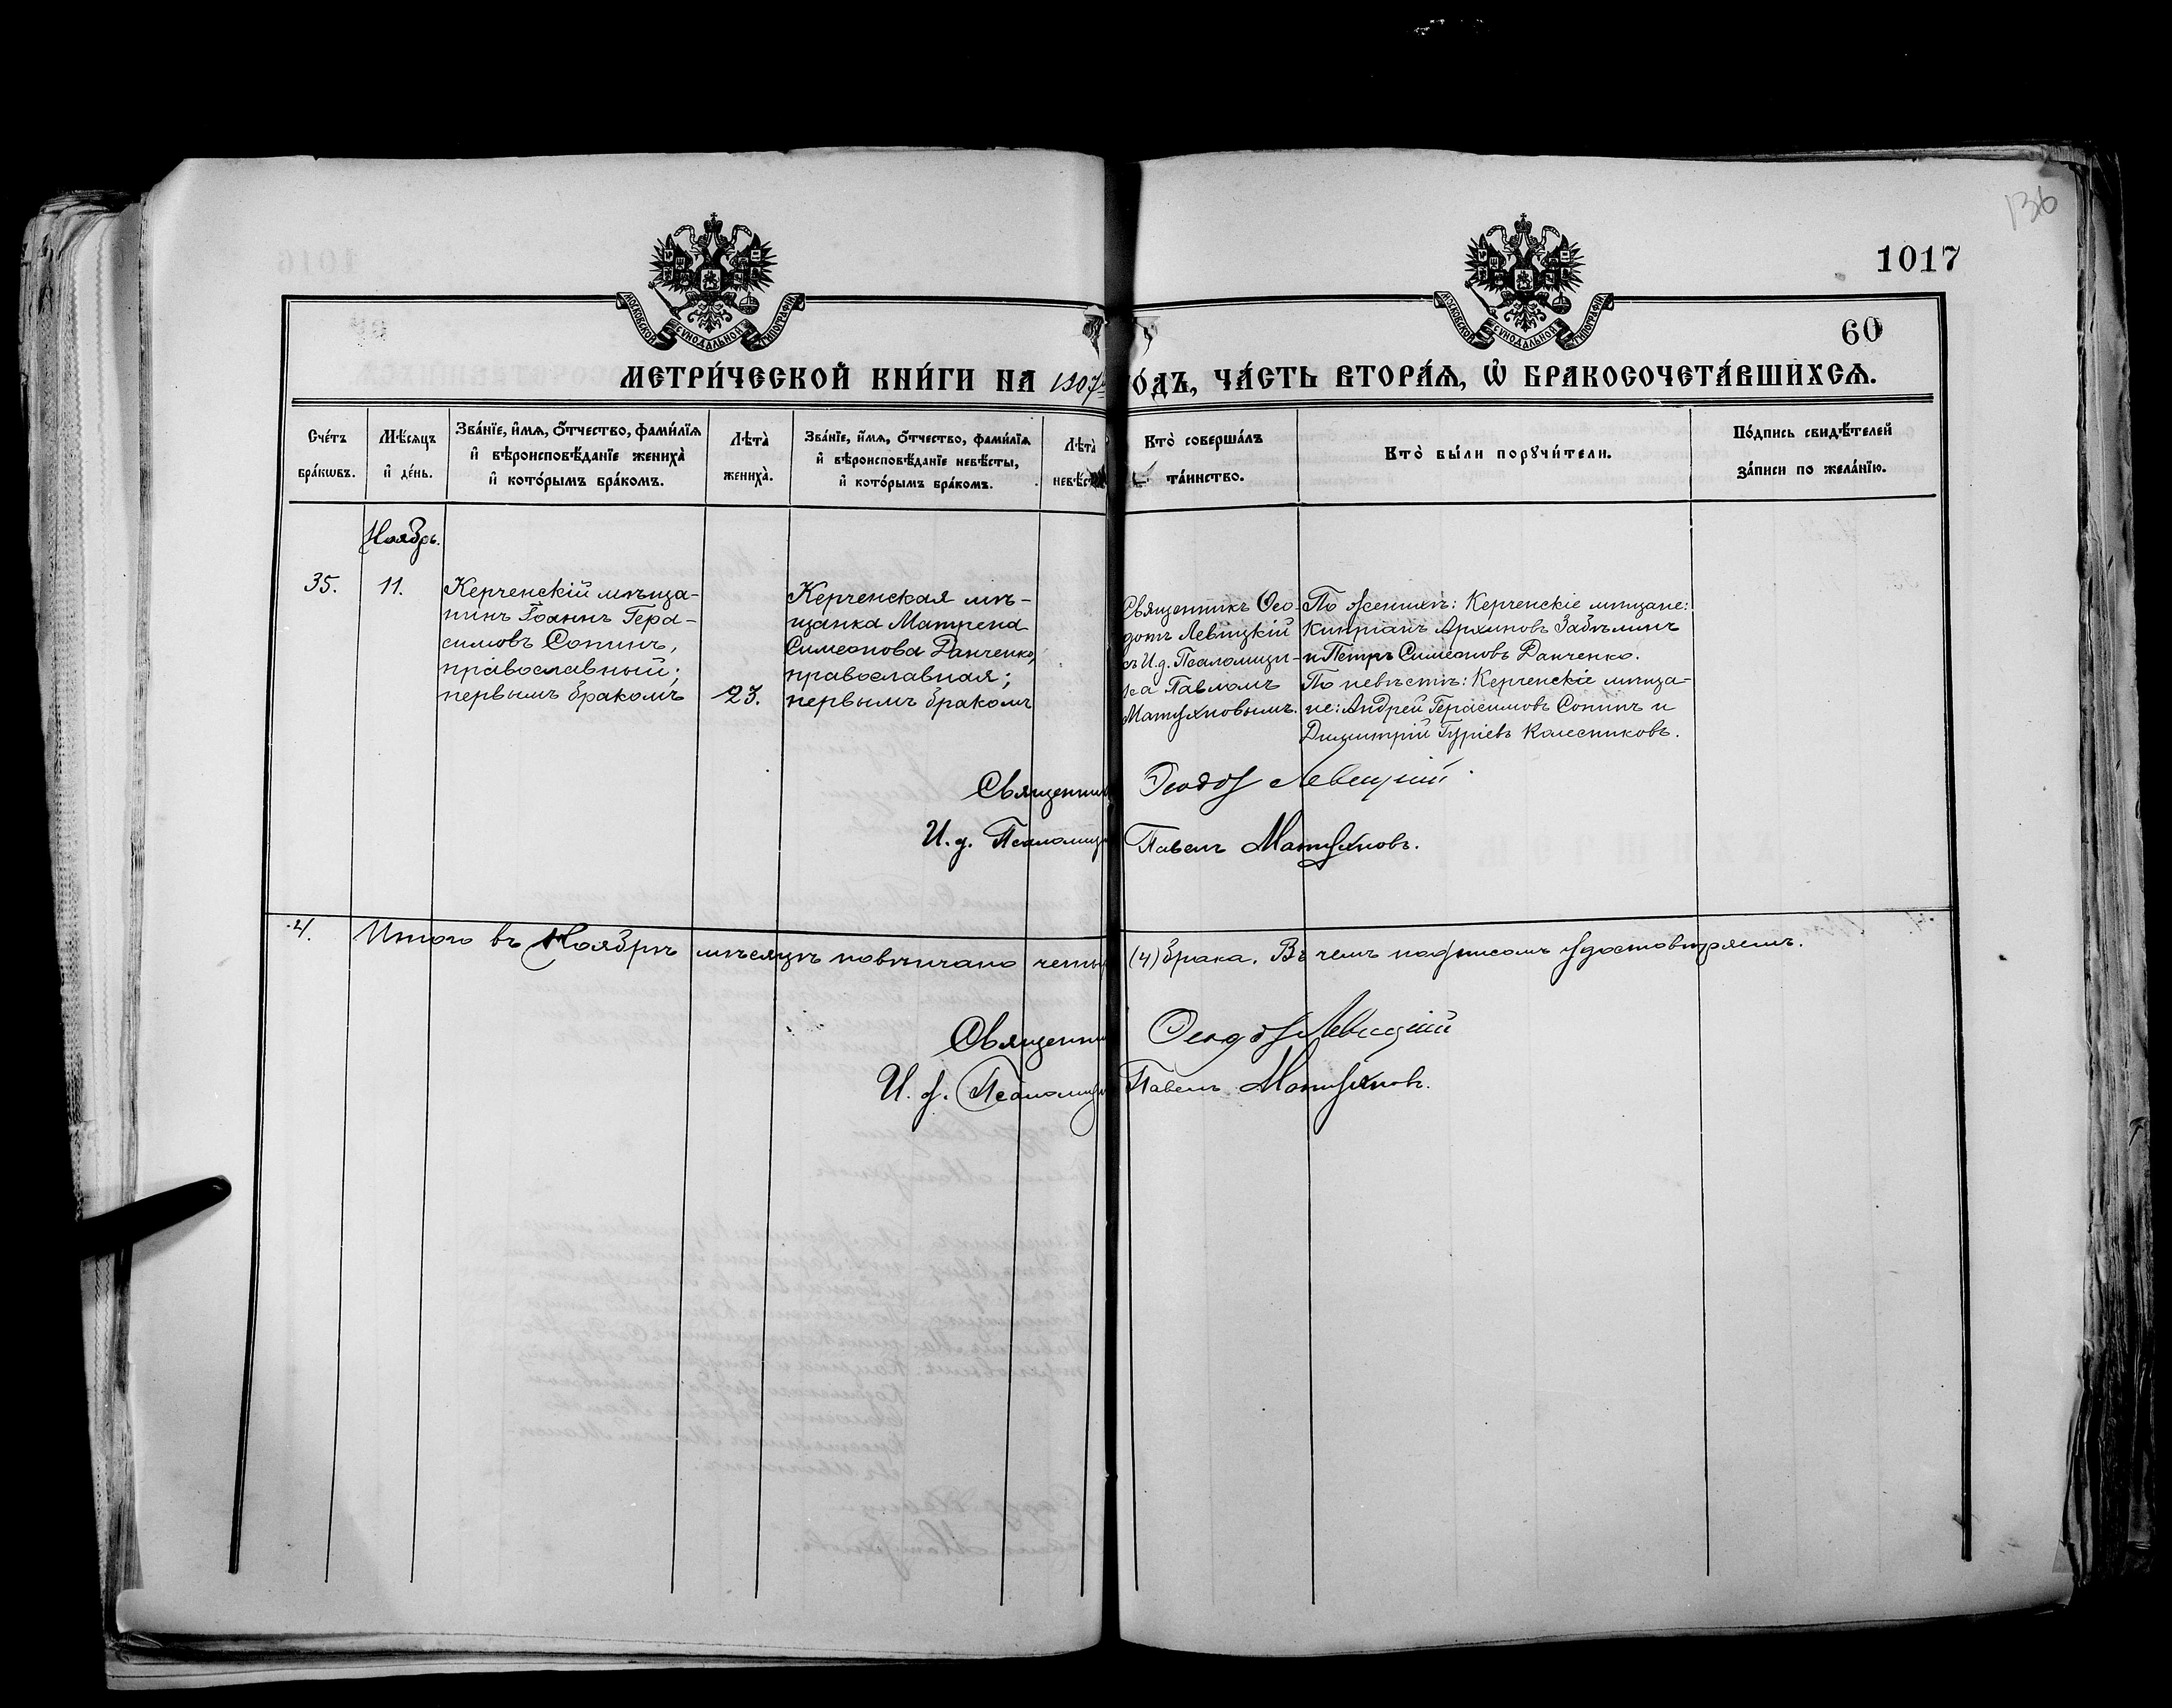 136
1017
МОСКОВСКОЙ СѴНОДАЛЬНОЙ ТИПОГРАФІИ
МОСКОВСКОЙ СѴНОДАЛЬНОЙ ТИПОГРАФІИ
60
МЕТРИ́ЧЕСКОЙ КНИ́ГИ НА 1907 ГО́ДЪ, ЧА́СТЬ ВТОРА́Ѧ, Ѡ҆ БРАКОСОЧЕТА́ВШИХСѦ.
Сче́тъ
бра́кѡвъ.
Мѣ́сѧцъ
и҆ де́нь.
Зва́нїе, и҆́мѧ, ѻ҆́тчество, фами́лїѧ
и҆ вѣроисповѣ́данїе жениха̀
и҆ кото́рымъ бра́комъ.
Лѣта̀
жениха̀.
Зва́нїе, и҆́мѧ, ѻ҆́тчество, фами́лїѧ
и҆ вѣроисповѣ́данїе невѣ́сты,
и҆ кото́рымъ бра́комъ.
Лѣта̀
невѣ́с
Кто̀ соверша́лъ
та́инство.
Кто̀ бы́ли порꙋчи́тели.
По́дпись свидѣ́телей
за́писи по жела́нїю.
Ноябрь.
35.
11.
Керченскій мѣща-
нинъ Іоаннъ Гера-
симовъ Сопинъ,
православный;
первымъ бракомъ
23.
Керченская мѣ-
щанка Матрена
Симеонова Данченко,
православная;
первымъ бракомъ
Священникъ Ѳео-
дотъ Левицкій
съ И.д. Псаломщи-
ка Павломъ
Матухновымъ.
По женихѣ: Керченскіе мѣщане:
Кипріанъ Архиповъ Забѣлинъ
и Петръ Симеоновъ Данченко.
По невѣстѣ: Керченскіе мѣща-
не: Андрей Герасимовъ Сопинъ и
Димитрій Гуріевъ Колесниковъ.
Священник Ѳеодот Левицкий
И. д. Псаломщ Павелъ Матухновъ.
4. Итого въ Ноябрѣ мѣсяцѣ повѣнчано четы (4) брака. Въ чемъ подписомъ удостовѣряемъ.
Священни Ѳеодот Левицкий
И. д. Псаломщ Павелъ Матухновъ.